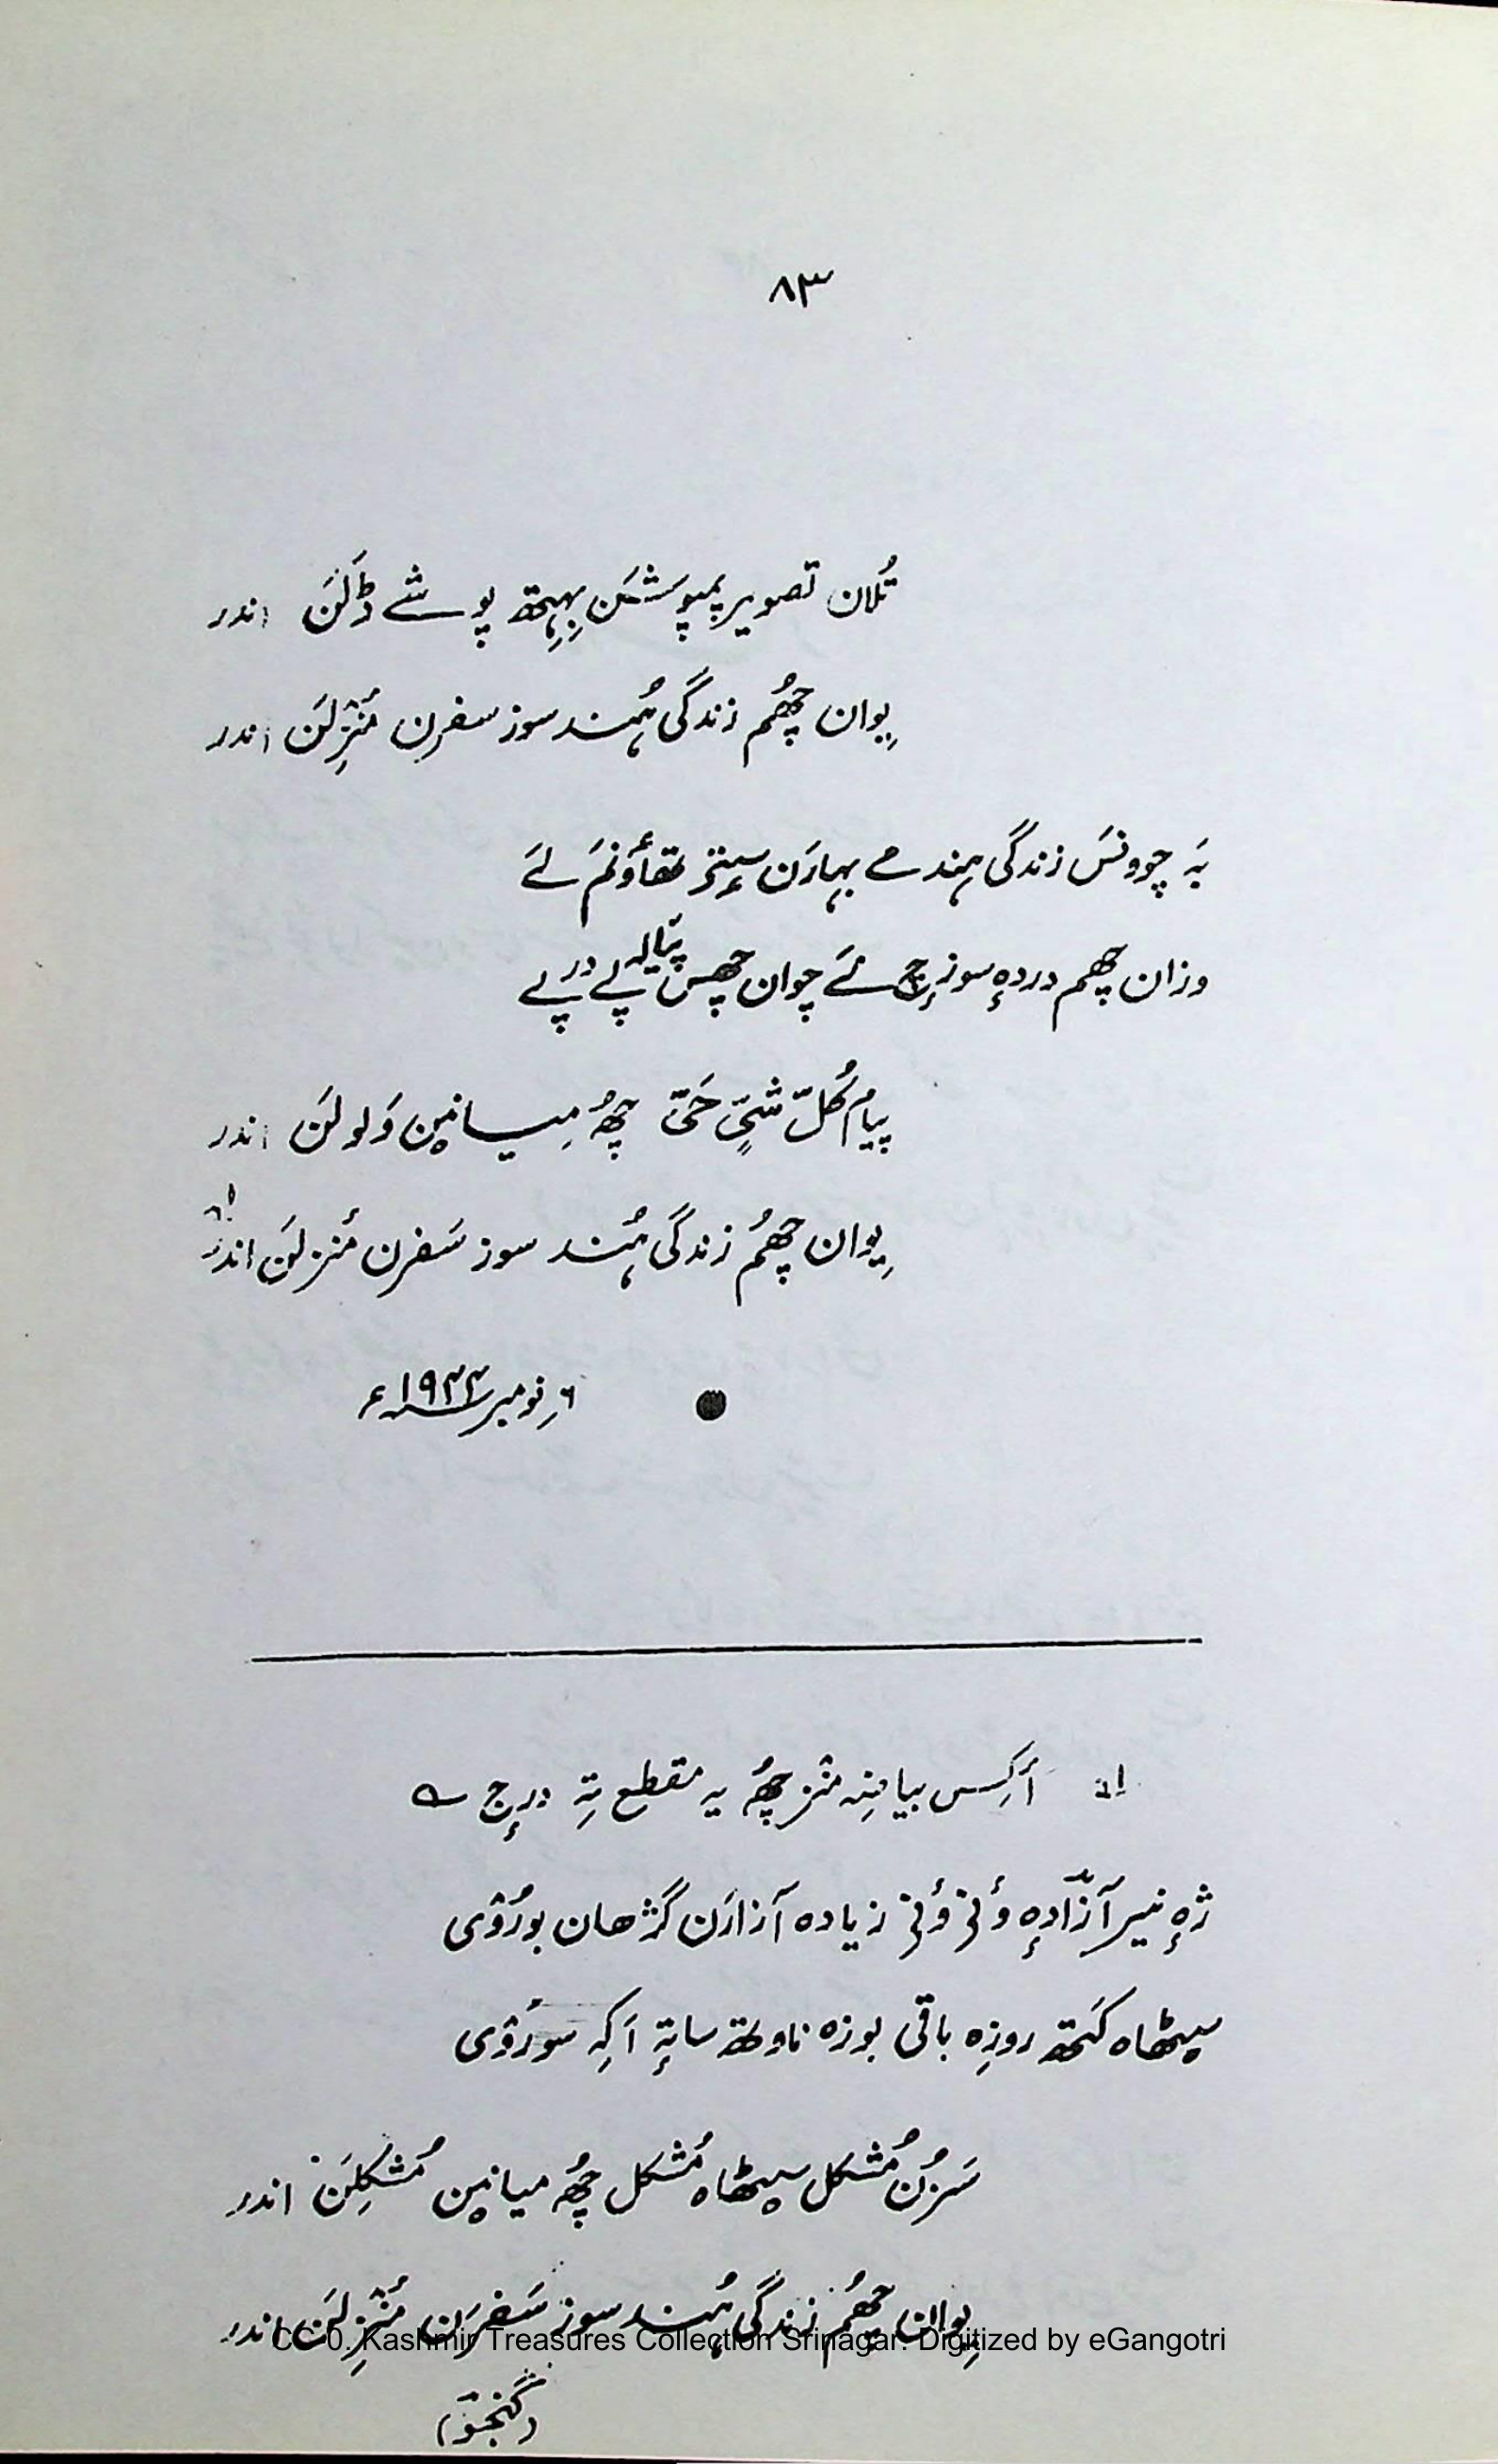 ۸۳
تُلان تصویر پمپوشَن بِہِتھ پوشے ڈَلَن اندر
یِوان چھُم زندگی ہُند سوز سفرن مَنٛزِلَن اندر
بہَ چوونسَ زندگی ہند مے بہارَن سٟتۍ تھأوَنَم لَے
وزان چھم دردہٕ سوزٕچ نَے چوان چھس پیالہ پے در پے
پیامِ کُلّ شیٍٔ حَیّ چھُہ مِیانٮ۪ن وَلولَن اندر
یِوان چھُم زندگی ہُند سوز سَفرن مَنزلَن اندر ؎۱
۶ نومبر ۱۹۴۴ء
؎۱ أکِس بیاضِہ منٛز چھُہ یہ مقطع تہِ درٕج ؎
ژٕہ نیر آزادہٕ وٕنۍ وٕنۍ زیادہ آزارَن گژھان بورُوٛی
سٮ۪ٹھاہ کَتھ روزِہ باقی بوزہ ناوتھ ساتہٕ اَکِہ سورُوٛی
سَرُن مُشکل سٮ۪ٹھاہ مُشکل چھُہ میانٮ۪ن مُشکِلَن اندر
یِوان چھُم زندگی ہُند سوز سَفرَن مَنٛزِلَن اندر
CC-0. Kashmir Treasures Collection Srinagar. Digitized by eGangotri